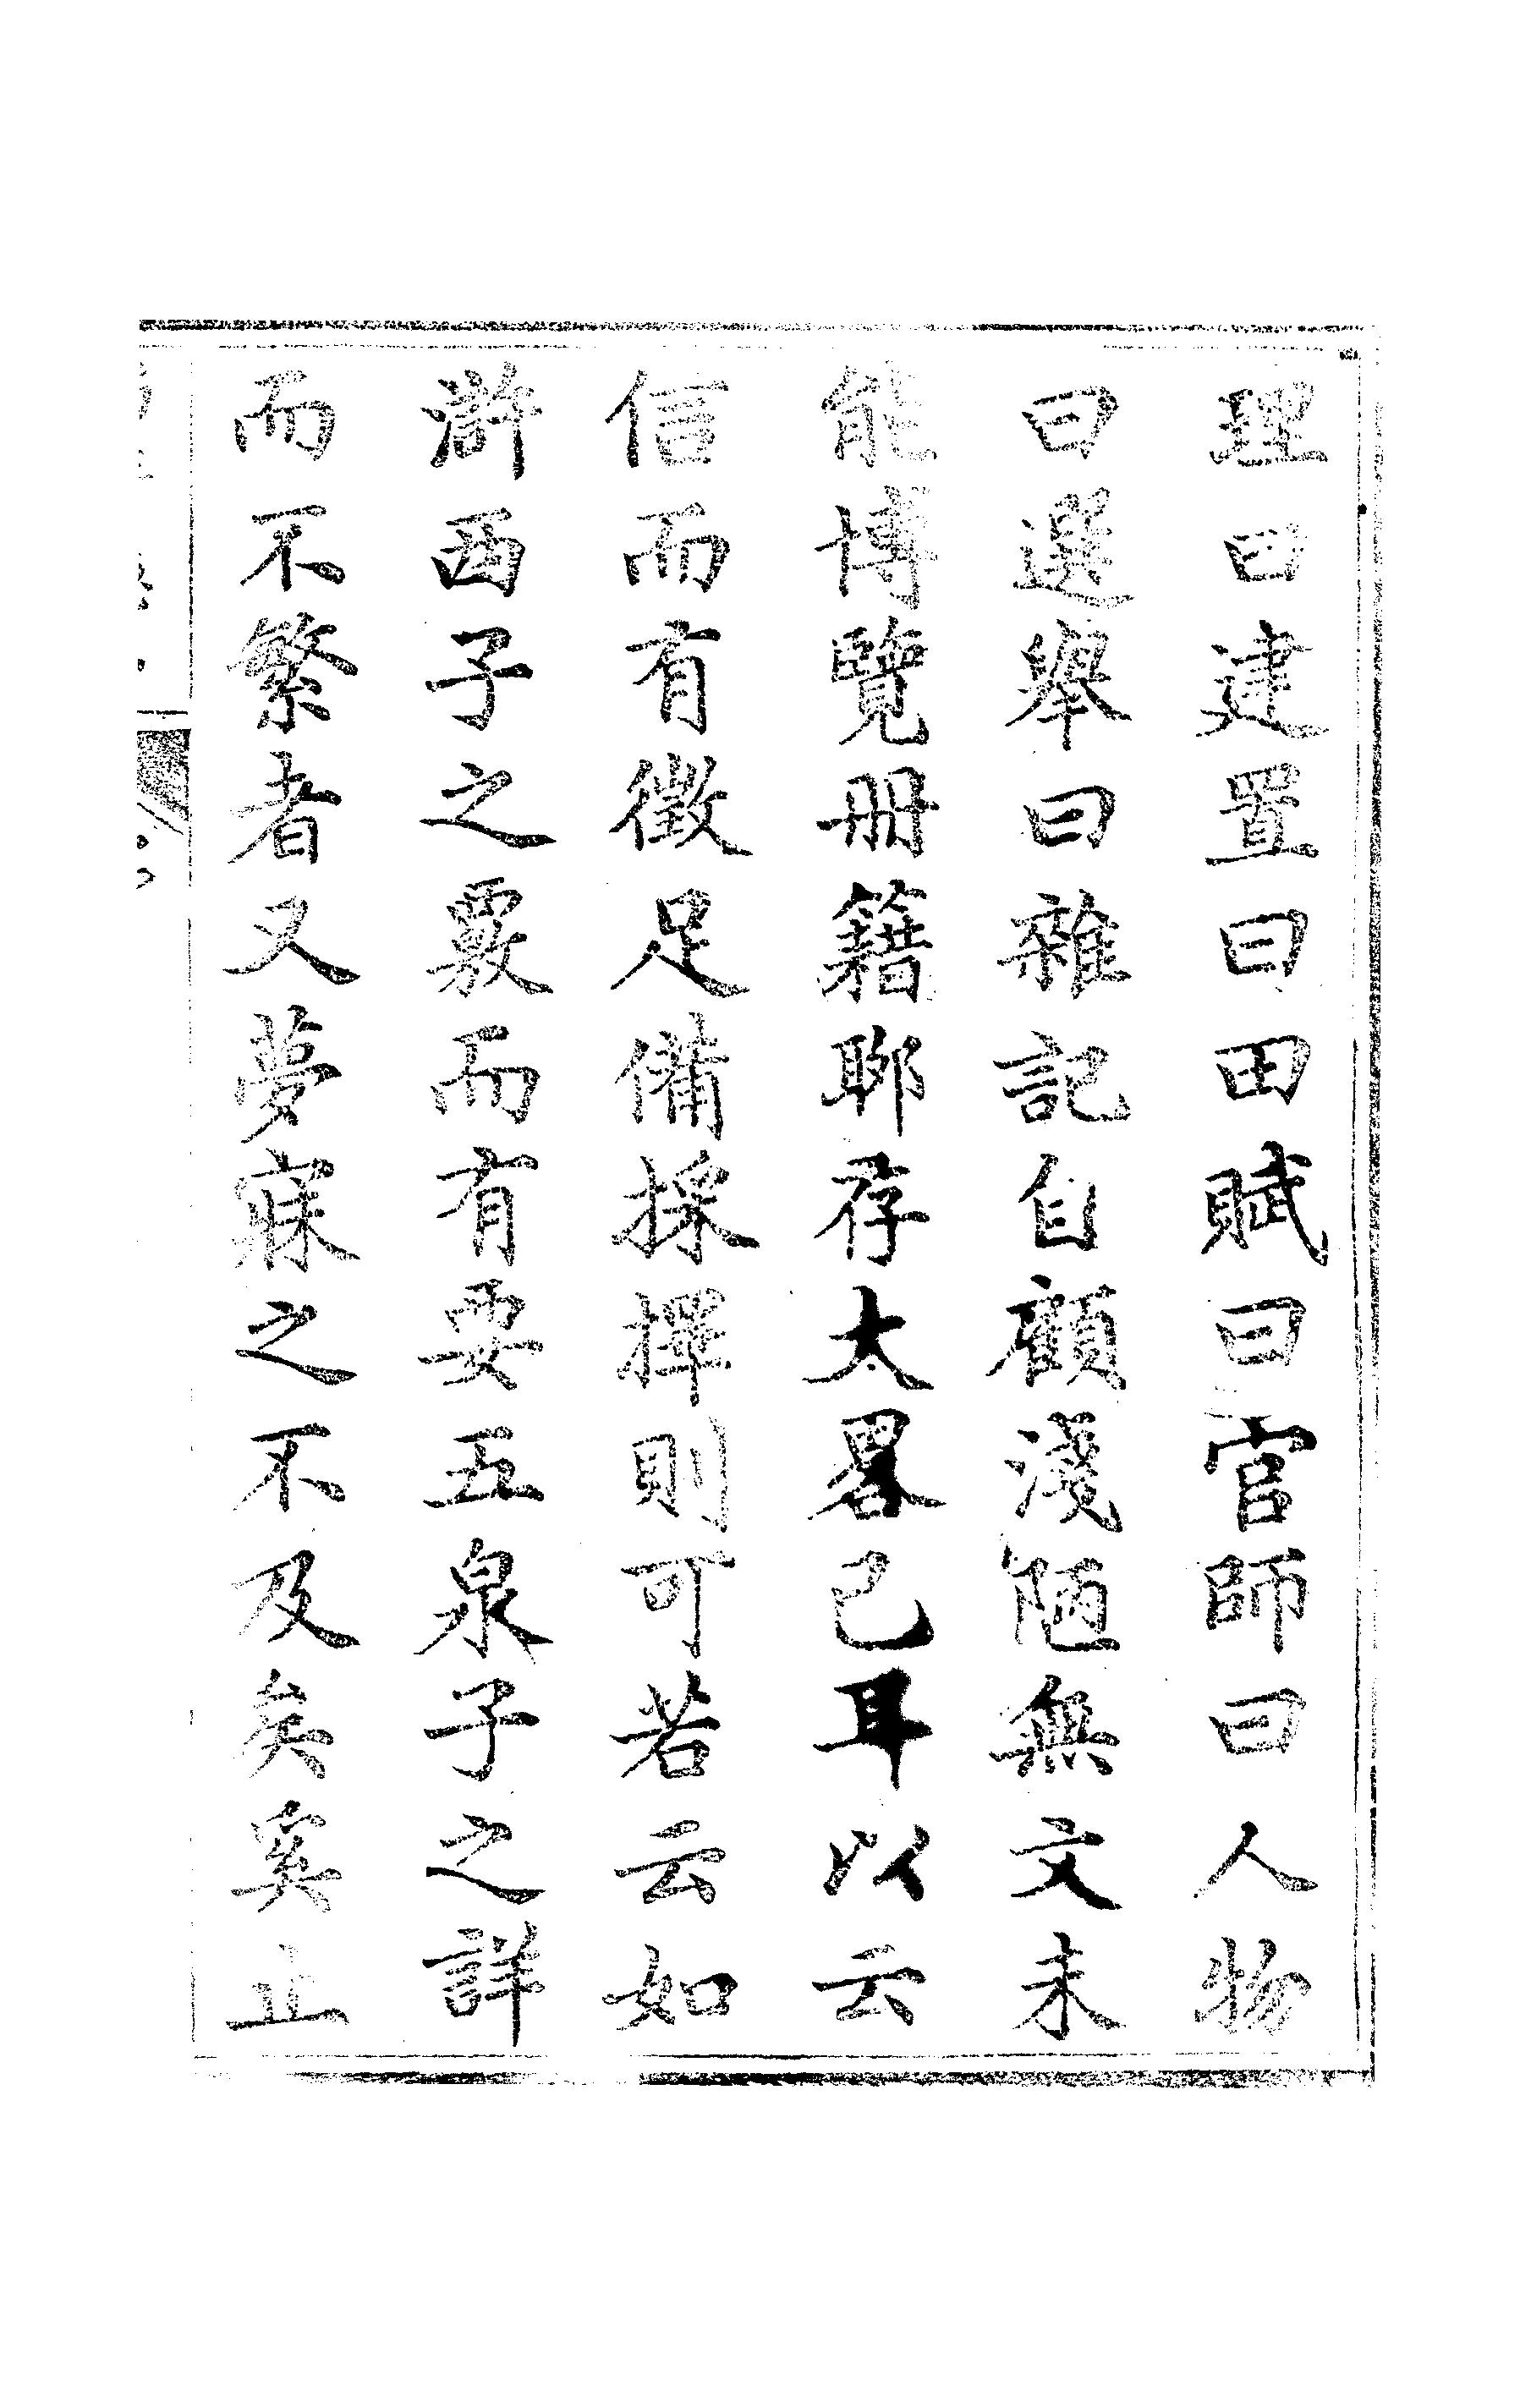 理曰建置曰田賦曰官師曰人物
曰選舉曰雜記自顧淺陋無文未
能博覽冊籍聊存大畧已耳以云
信而有徵足備採擇則可若云如
滸西子之覈而有要五泉子之詳
而不繁者又夢寐之不及矣奚止